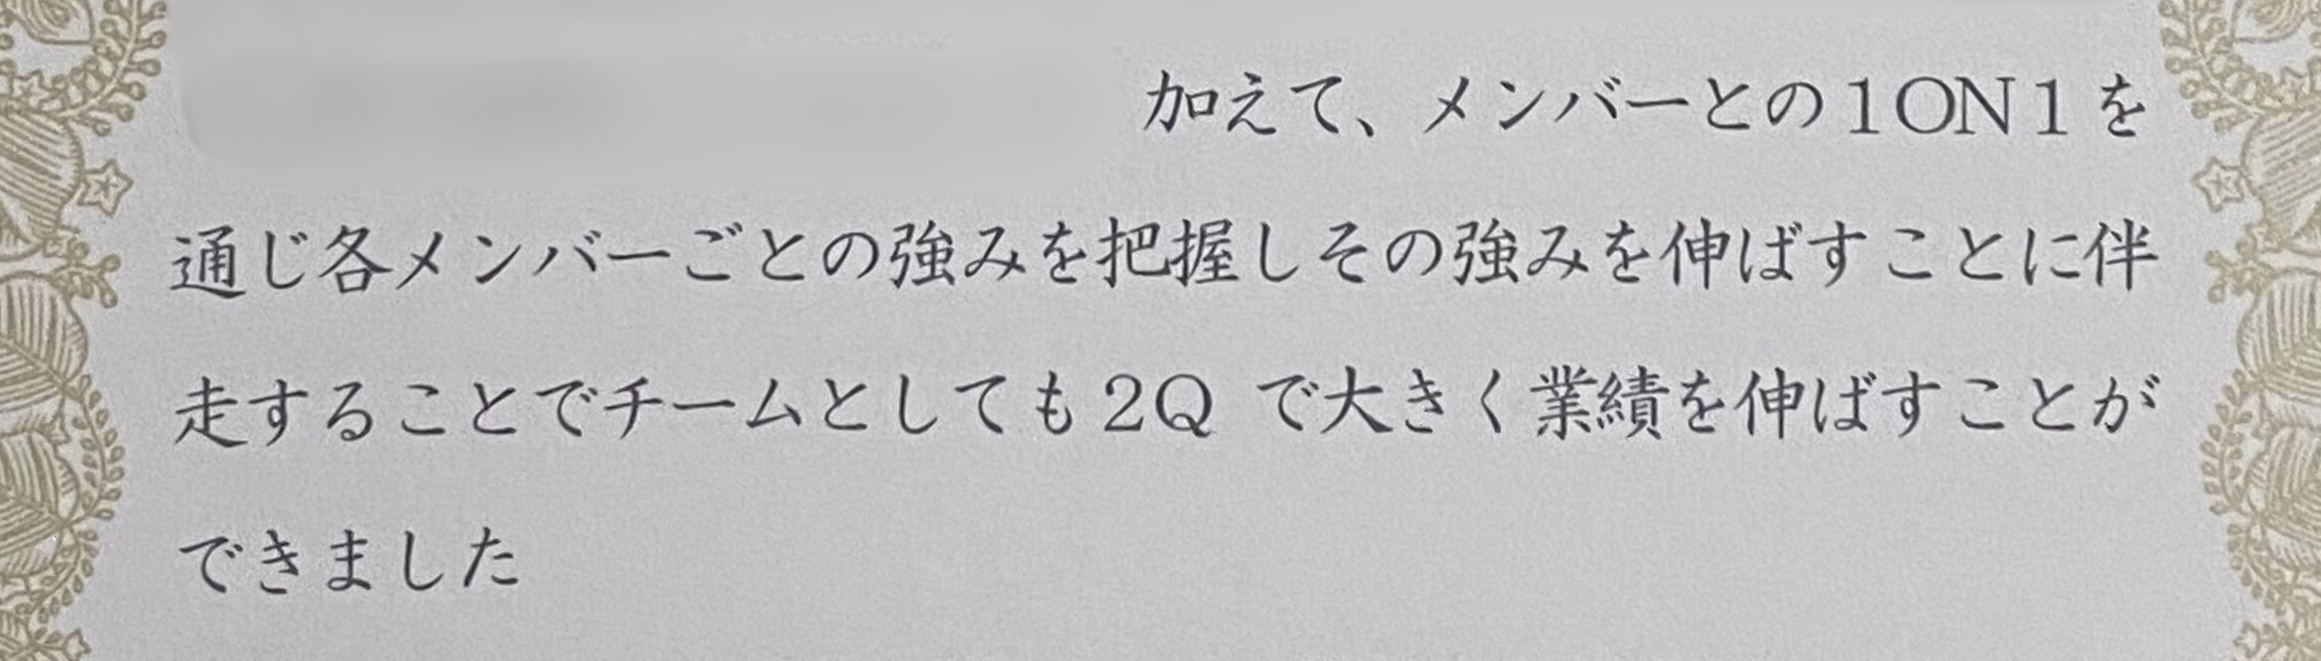 加えて、メンバーとの1ON1を
通じ各メンバーごとの強みを把握しその強みを伸ばすことに伴
走することでチームとしても2Q で大きく業績を伸ばすことが
できました